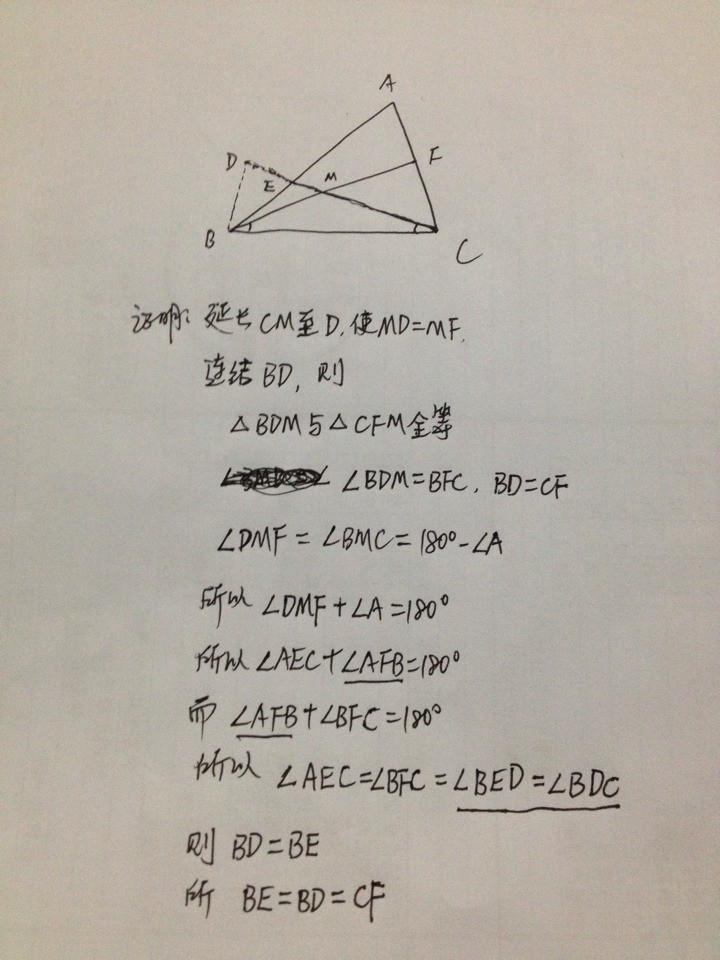 A
D
E
M
F
B
C
证明: 延长CM至D, 使MD=MF,
连结BD, 则
△BDM与△CFM全等
∠BDM=BFC, BD=CF
∠DMF=∠BMC=180°-∠A
所以 ∠DMF+∠A=180°
所以 ∠AEC+∠AFB=180°
而 ∠AFB+∠BFC=180°
所以 ∠AEC=∠BFC=∠BED=∠BDC
则 BD=BE
所 BE=BD=CF